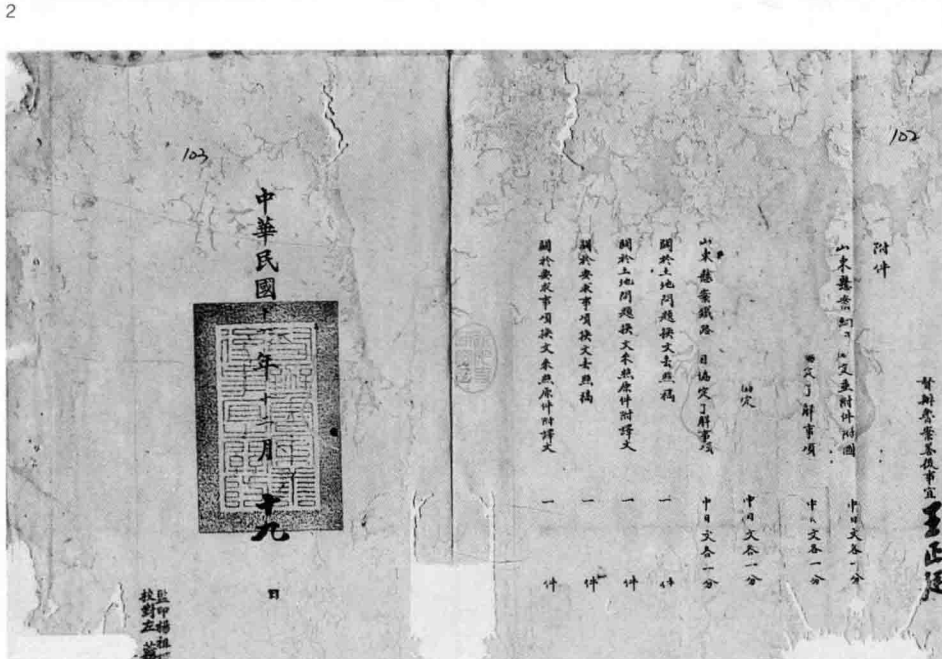 2
102
督辦魯案善後事宜王正廷
附件
山東懸案細 定並附件附圖 中日文各一分
定了解事項 中 文各一分
協定 中日文各一分
山東懸案鐵路 日協定了解事項 中日文各一分
關於土地問題換文去照稿 一件
關於土地問題換文來照原件附譯文 一件
關於要求事項換文去照稿 一件
關於要求事項換文來照原件附譯文 一件
103
中華民國十一年十二月十九日
監印楊祖
校對左